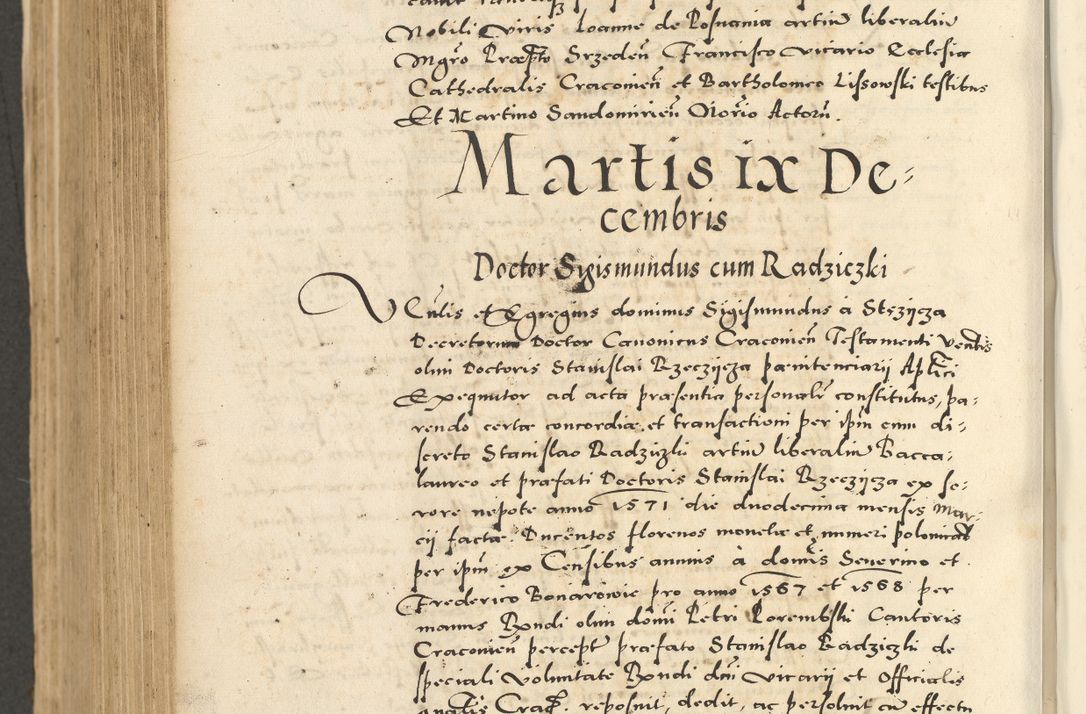 Nobili Viris Ioanne de Posnania artiū liberaliū
Mgr̄o Præpto Srzedeñ Francisco vicario Ecclesiæ
Cathedralis Cracovieñ et Bartholomeo Lissowski testibus
Et Martino Sandomirieñ Notr̄io Actorū.
Martis ix De-
cembris
Doctor Sigismundus cum Radziczki
et Egregius dominus Sigismundus à Stezijcza
Decretorum Doctor Canonicus Cracovieñ Testamenti
olim Doctoris Stanislai Rzeczijcza pænitenciarij Aplici
Exequutor ad acta præsentia personalr̄ constitutus, pa-
rendo certæ concordiæ et transactioni per ip̄m cum di-
screto Stanislao Radziczki artiū liberaliū Bacca-
laureo et præfati Doctoris Stanislai Rzeczijcza ex so-
rore nepote anno 1571 die duodecima mensis Mar-
cij factæ. Ducentos florenos monetæ et numeri polonical
per ip̄m ex Censibus annuis à dom̄is Severino et
Frederico Bonarowie pro anno 1567 et 1568 per
manus Rn̄di olim dōmi Petri Porembski Cantoris
Cracovieñ percept præfato Stanislao Radziczki de
speciali voluntate Rn̄di dn̄i vicarij et Officialis
gn̄alis Crac. reposuit, dedit, ac persolvit cū effectu